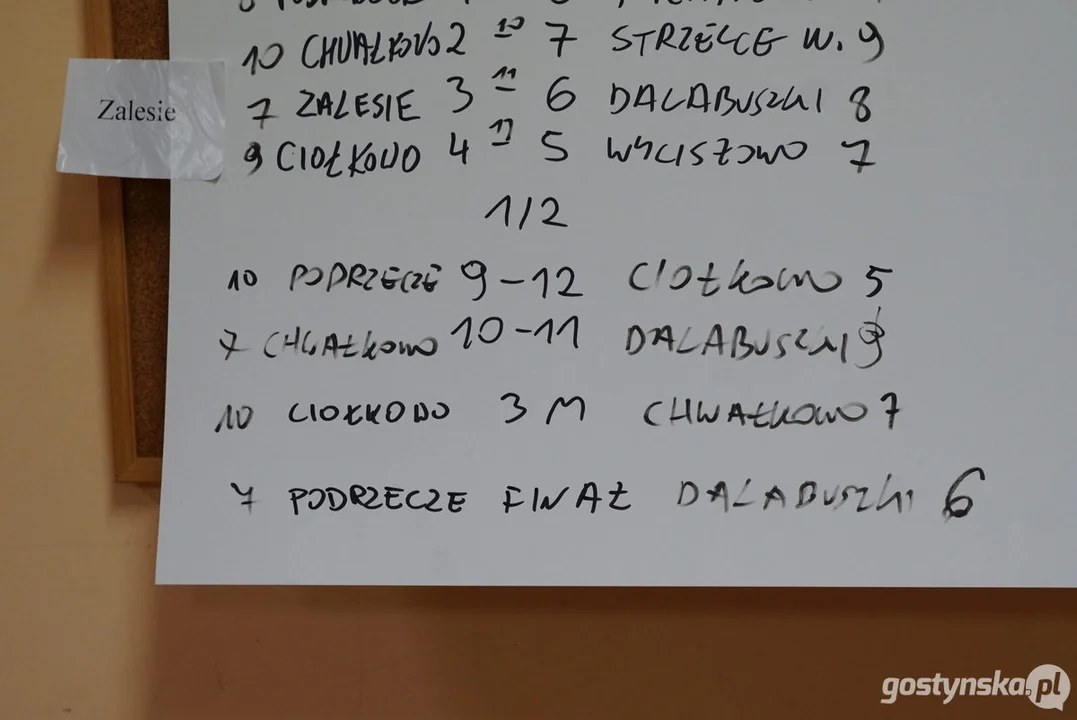 10 CHWAŁKOWO 2 10 7 STRZELCE W. 9
Zalesie
7 ZALESIE 3 11 6 DALABUSZKI 8
9 CIOŁKOWO 4 5 WYCISZOWO 7
1/2
10 PODRZECZE 9-12 CIOŁKOWO 5
7 CHWAŁKOWO 10-11 DALABUSZKI
10 CIOŁKOWO 3 M CHWAŁKOWO 7
7 PODRZECZE FINAŁ DALABUSZKI 6
gostynska.pl